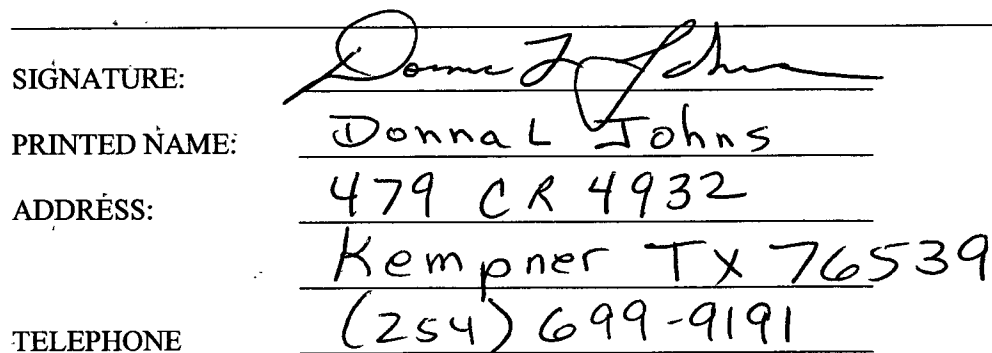 SIGNATURE: Donna L Johns
PRINTED NAME: Donna L Johns
ADDRESS: 479 CR 4932
Kempner TX 76539
TELEPHONE (254) 699-9191